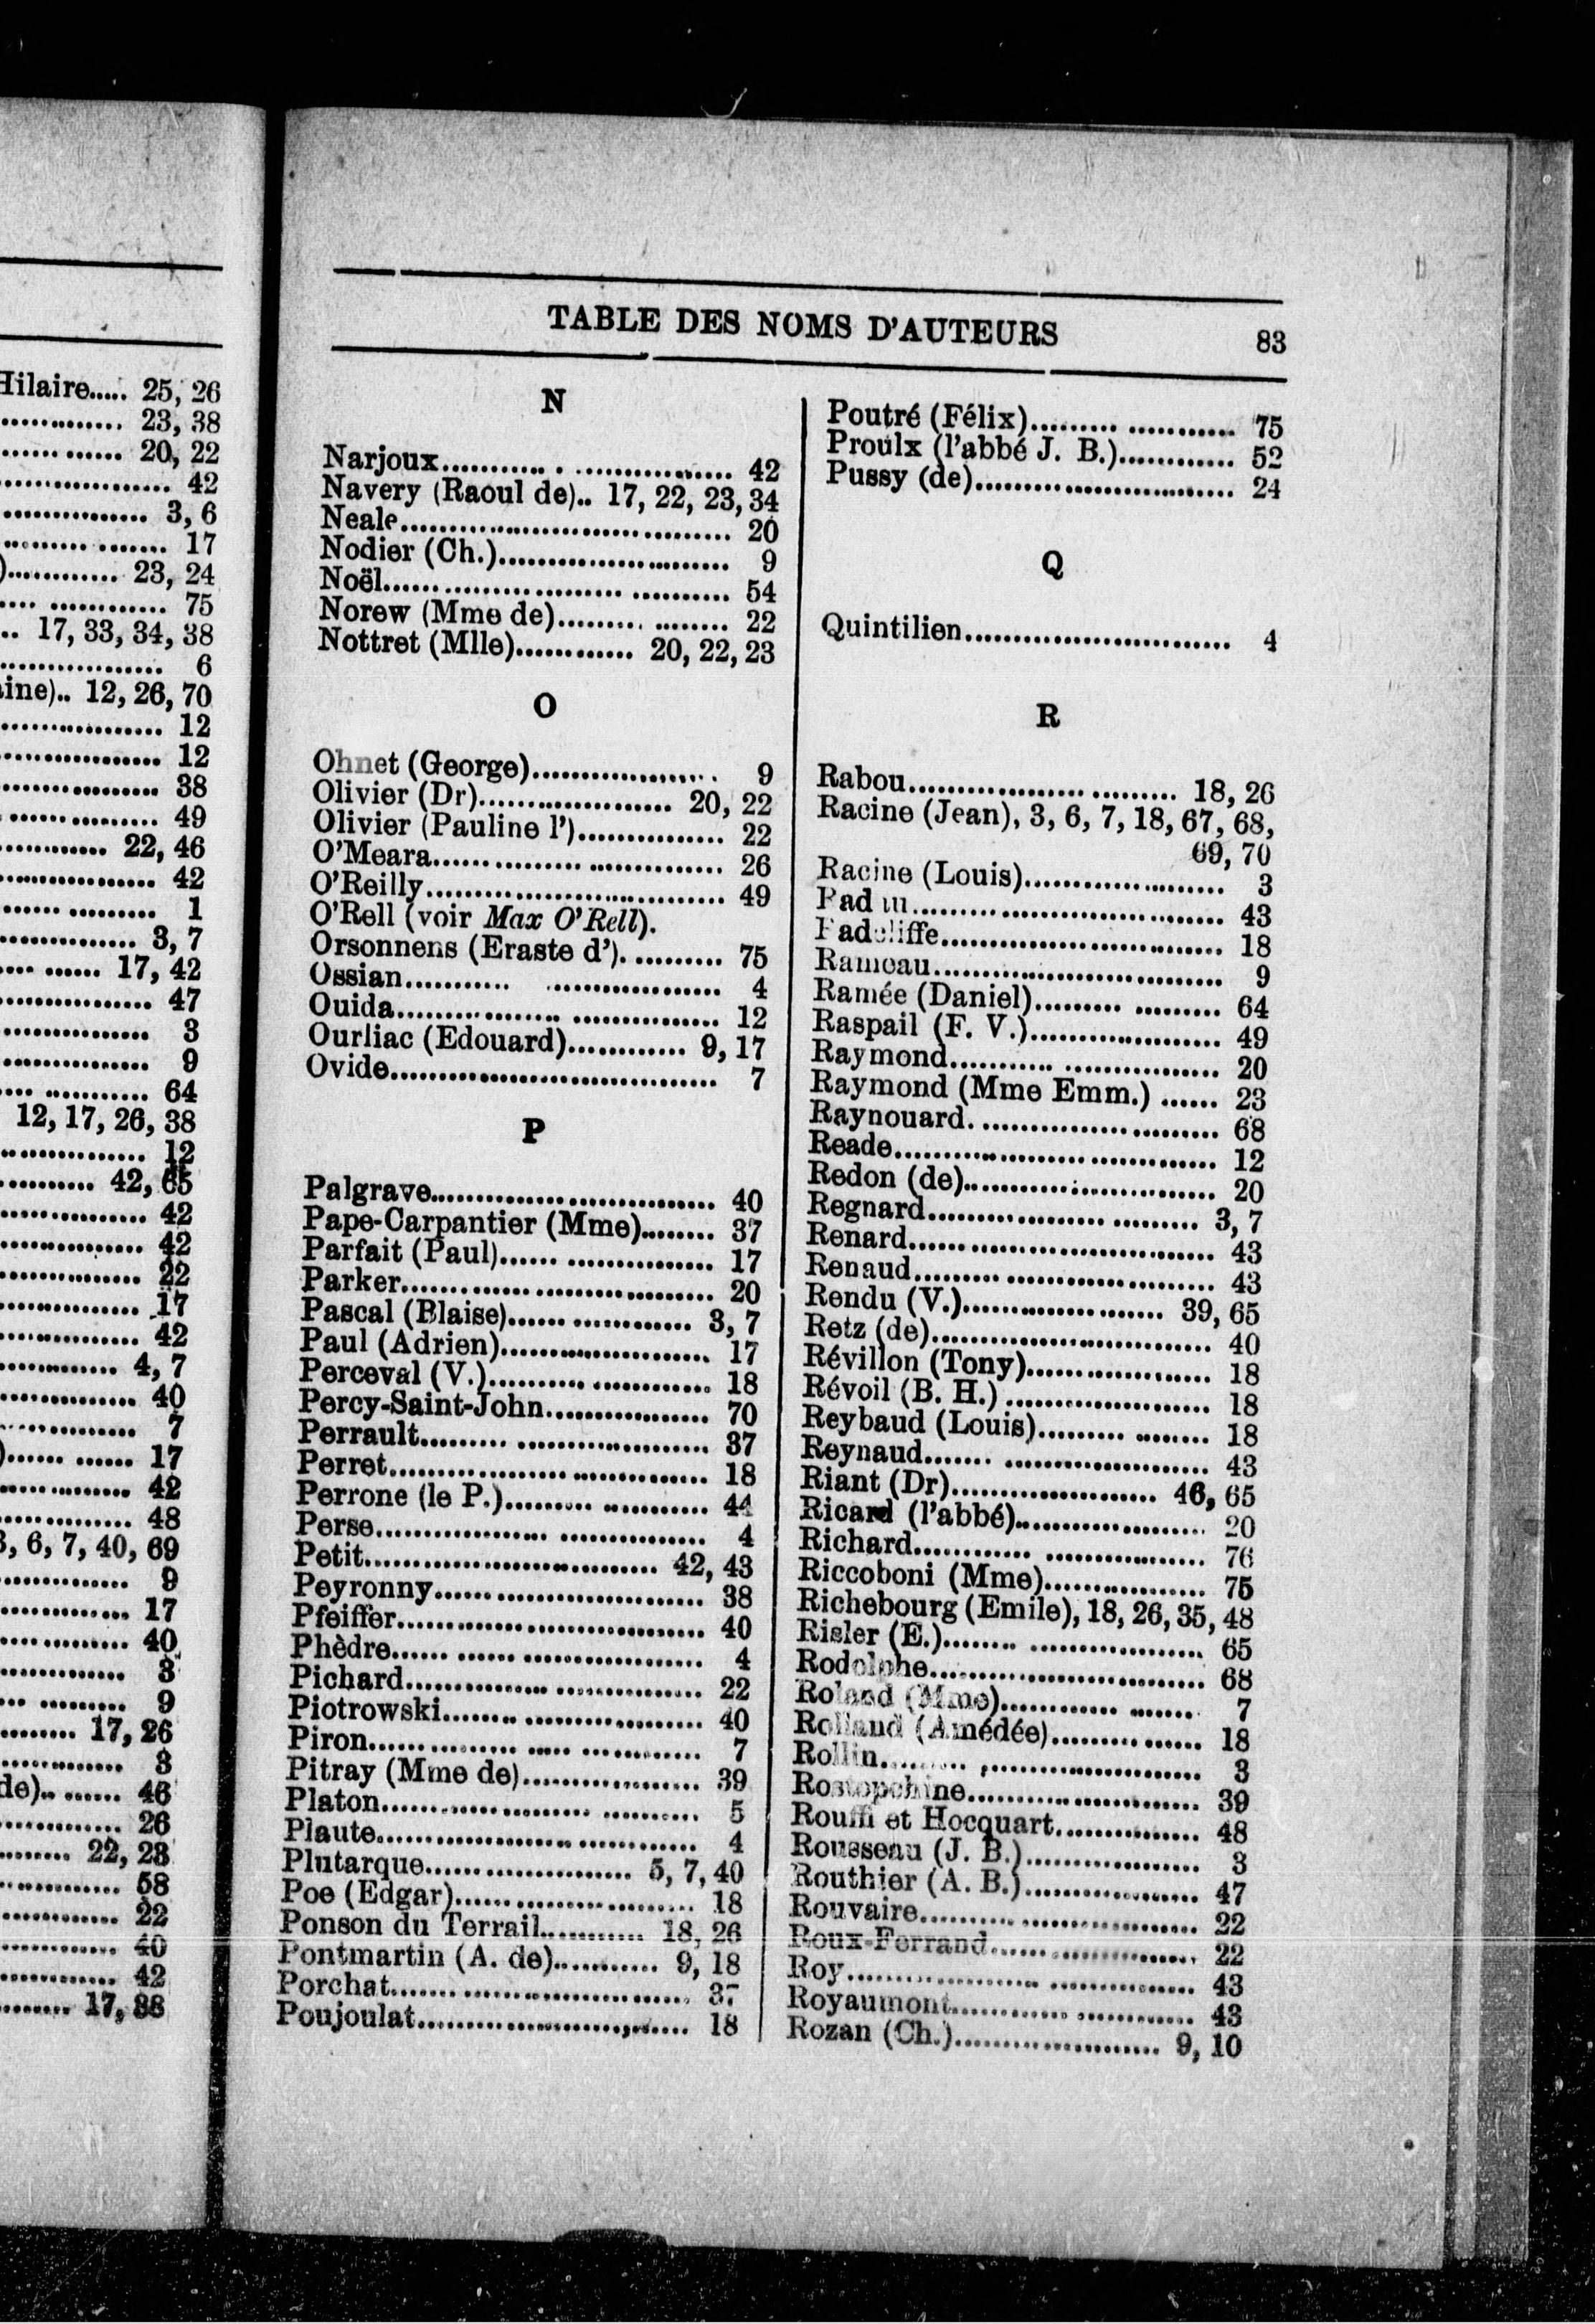 Hilaire..... 25, 26
............. 23, 38
............ 20, 22
.................. 42
............... 3, 6
................ 17
)............ 23, 24
................ 75
.. 17, 33, 34, 38
................. 6
aine).. 12, 26, 70
................. 12
................. 12
................. 38
................ 49
............ 22, 46
................ 42
............... 1
............... 3, 7
.......... 17, 42
................ 47
................ 3
................ 9
............... 64
12, 17, 26, 38
............... 12
.......... 42, 65
............... 42
............... 42
............... 22
............... 17
............... 42
............ 4, 7
.............. 40
.............. 7
)............ 17
.............. 42
.............. 48
3, 6, 7, 40, 69
............. 9
............. 17
............. 40
............. 3
............. 9
......... 17, 26
............. 3
de)........ 46
............. 26
......... 22, 23
............. 58
............. 22
............. 40
............. 42
........ 17, 38
TABLE DES NOMS D'AUTEURS 83
N
Narjoux............................ 42
Navery (Raoul de).. 17, 22, 23, 34
Neale.................................. 20
Nodier (Ch.)........................ 9
Noël................................... 54
Norew (Mme de)................. 22
Nottret (Mlle)............ 20, 22, 23
O
Ohnet (George)................... 9
Olivier (Dr).................... 20, 22
Olivier (Pauline l')............... 22
O'Meara.............................. 26
O'Reilly.............................. 49
O'Rell (voir Max O'Rell).
Orsonnens (Eraste d').......... 75
Ossian............................. 4
Ouida................................ 12
Ourliac (Edouard)............ 9, 17
Ovide................................. 7
P
Palgrave............................. 40
Pape-Carpantier (Mme)........ 37
Parfait (Paul)..................... 17
Parker................................ 20
Pascal (Blaise)................... 3, 7
Paul (Adrien)..................... 17
Perceval (V.)...................... 18
Percy-Saint-John................. 70
Perrault............................. 37
Perret................................ 18
Perrone (le P.).................... 44
Perse................................. 4
Petit.............................. 42, 43
Peyronny........................... 38
Pfeiffer............................... 40
Phèdre............................... 4
Pichard.............................. 22
Piotrowski.......................... 40
Piron................................. 7
Pitray (Mme de).................. 39
Platon................................ 5
Plaute................................ 4
Plutarque..................... 5, 7, 40
Poe (Edgar)........................ 18
Ponson du Terrail........... 18, 26
Pontmartin (A. de)........... 9, 18
Porchat.............................. 37
Poujoulat........................... 18
Poutré (Félix)..................... 75
Proulx (l'abbé J. B.)............ 52
Pussy (de).......................... 24
Q
Quintilien........................... 4
R
Rabou............................ 18, 26
Racine (Jean), 3, 6, 7, 18, 67, 68,
69, 70
Racine (Louis).................... 3
................................ 43
Radcliffe............................ 18
Rameau............................. 9
Ramée (Daniel).................. 64
Raspail (F. V.).................... 49
Raymond........................... 20
Raymond (Mme Emm.) ...... 23
Raynouard......................... 68
Reade................................ 12
Redon (de)......................... 20
Regnard........................... 3, 7
Renard............................... 43
Renaud.............................. 43
Rendu (V.)..................... 39, 65
Retz (de)............................ 40
Révillon (Tony)................... 18
Révoil (B. H.) ..................... 18
Reybaud (Louis)................. 18
Reynaud............................ 43
Riant (Dr)..................... 46, 65
Ricard (l'abbé).................... 20
Richard............................. 76
Riccoboni (Mme)................. 75
Richebourg (Emile), 18, 26, 35, 48
Risler (E.).......................... 65
Rodolphe............................ 68
Roland (Mme).................... 7
Rolland (Amédée)............... 18
Rollin................................ 3
Rostopchine........................ 39
Rouffi et Hocquart............... 48
Rousseau (J. B.).................. 3
Routhier (A. B.).................. 47
Rouvaire............................ 22
Roux-Ferrand..................... 22
Roy................................... 43
Royaumont........................ 43
Rozan (Ch.)..................... 9, 10